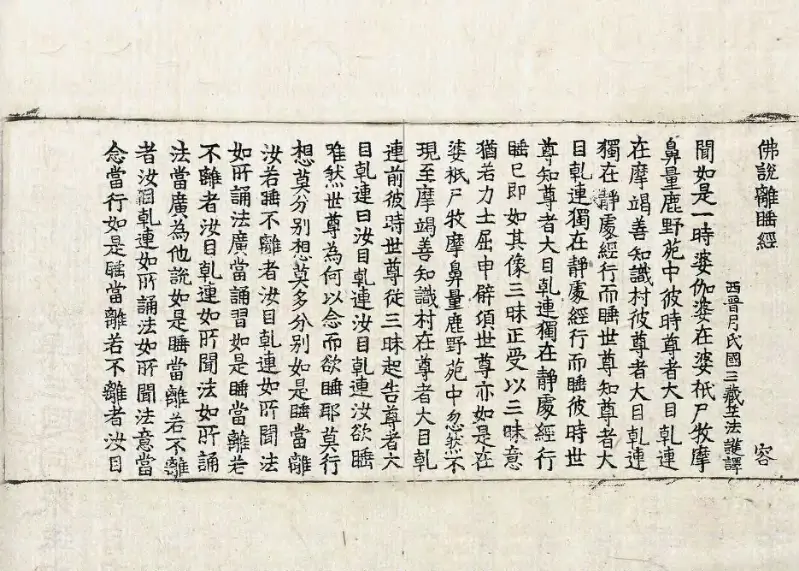 佛說離睡經
容
西晉月氏國三藏竺法護譯
聞如是一時婆伽婆在婆祇尸牧摩
鼻量鹿野苑中彼時尊者大目乹連
在摩竭善知識村彼尊者大目乹連
獨在靜處經行而睡世尊知尊者大
目乹連獨在靜處經行而睡彼時世
尊知尊者大目乹連獨在靜處經行
睡已即如其像三昧正受以三昧意
猶若力士屈申臂須世尊亦如是在
婆祇尸牧摩鼻量鹿野苑中忽然不
現至摩竭善知識村在尊者大目乹
連前彼時世尊從三昧起告尊者大
目乹連曰汝目乹連汝目乹連汝欲睡
唯然世尊為何以念而欲睡耶莫行
想莫分別想莫多分別如是睡當離
汝若睡不離者汝目乹連如所聞法
如所誦法廣當誦習如是睡當離若
不離者汝目乹連如所聞法如所誦
法當廣為他說如是睡當離若不離
者汝目乹連如所誦法如所聞法意當
念當行如是睡當離若不離者汝目